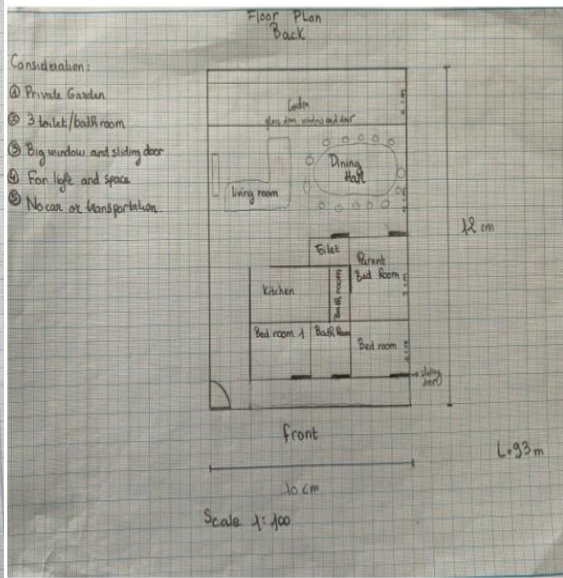 Floor Plan
Back
Consideration:
① Private Garden
② 3 toilet/bathroom
③ Big window and sliding door
④ For light and space
⑤ No car or transportation.
Garden
glass door window and door
Dining
Hall
living room
12 cm
Toilet
Parent
Bed Room
Kitchen
Bath room
Bed room 1
Bath Room
Bed room
sliding
door
front
10 cm
Scale 1:100